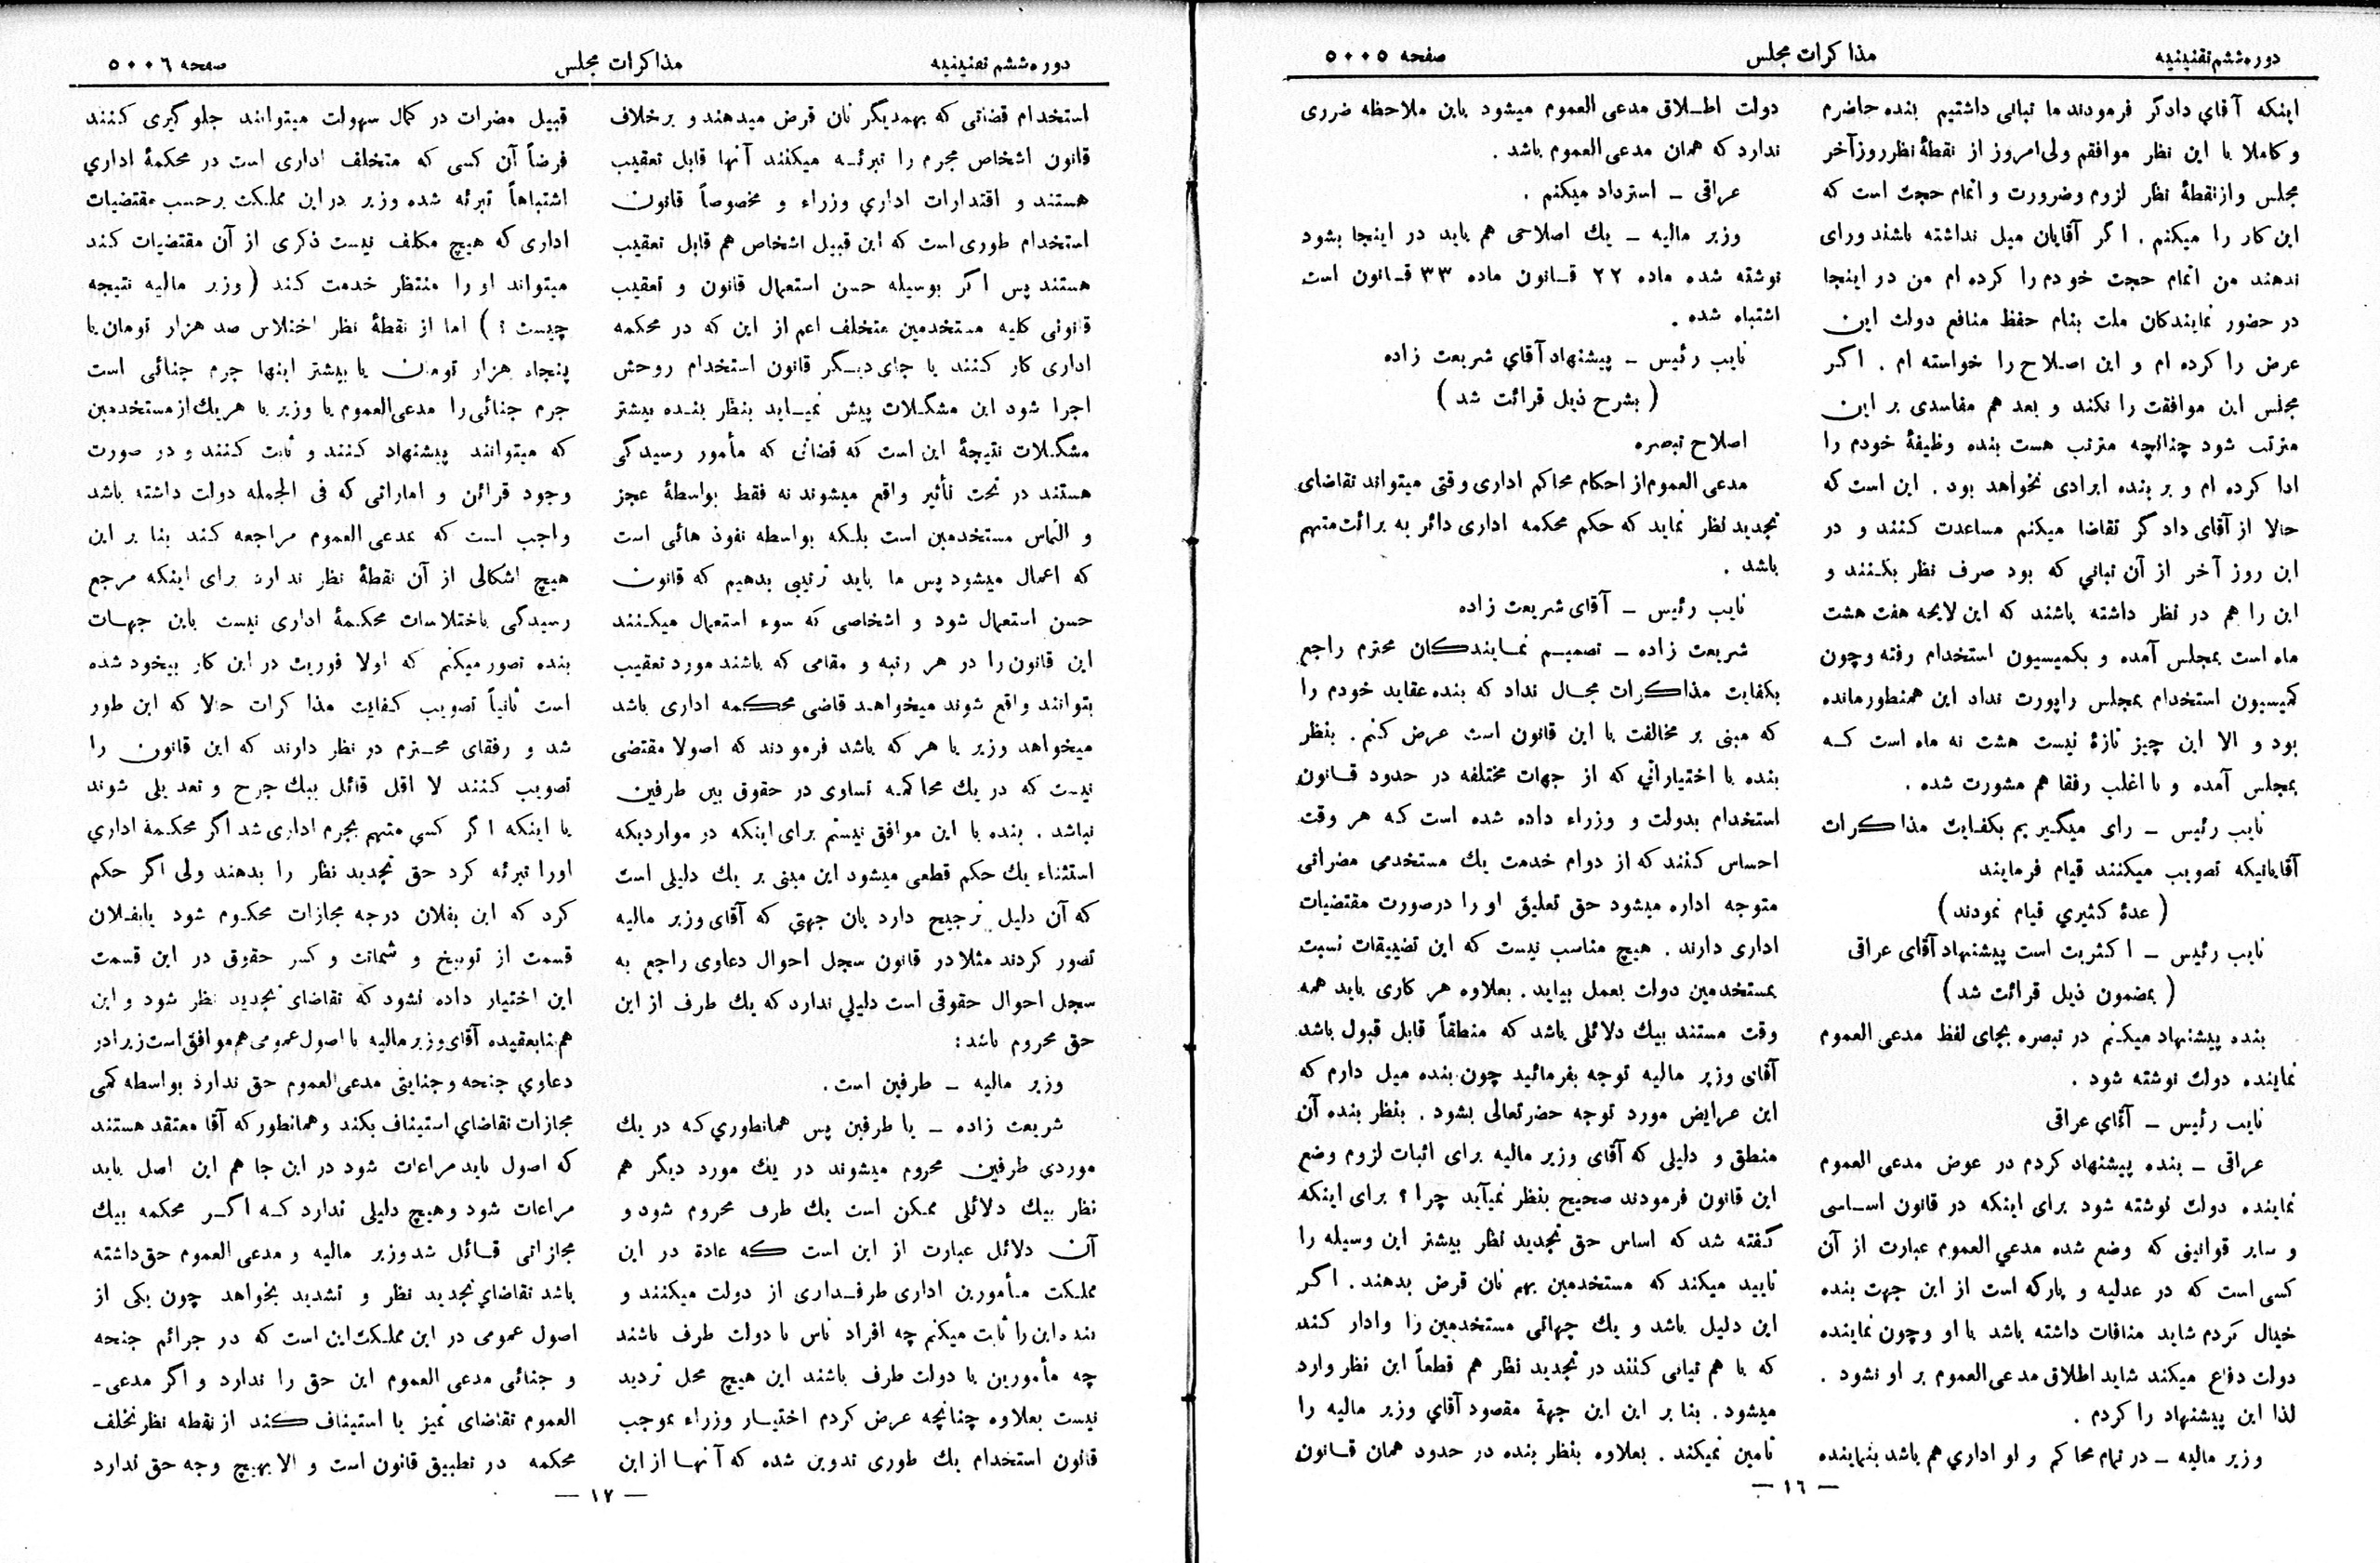 دوره ششم تقنینیه
مذاکرات مجلس
صفحه ۵۰۰۵
اینکه آقای دادگر فرمودند ما تبانی داشتیم بنده حاضرم
و کاملا با این نظر موافقم ولی امروز از نقطهٔ نظر روز آخر
مجلس و از نقطهٔ نظر لزوم و ضرورت و اتمام حجت است که
این کار را میکنم . اگر آقایان میل نداشته باشند و رای
ندهند من اتمام حجت خودم را کرده ام من در اینجا
در حضور نمایندکان ملت بنام حفظ منافع دولت این
عرض را کرده ام و این اصلاح را خواسته ام . اگر
مجلس این موافقت را نکند و بعد هم مفاسدی بر این
مترتب شود چنانچه مترتب هست بنده وظیفهٔ خودم را
ادا کرده ام و بر بنده ایرادی نخواهد بود . این است که
حالا از آقای دادگر تقاضا میکنم مساعدت کنند و در
این روز آخر از آن تبانی که بود صرف نظر بکنند و
این را هم در نظر داشته باشند که این لایحه هفت هشت
ماه است بمجلس آمده و بکمیسیون استخدام رفته و چون
کمیسیون استخدام بمجلس راپورت نداد این همینطور مانده
بود و الا این چیز تازهٔ نیست هشت نه ماه است که
بمجلس آمده و با اغلب رفقا هم مشورت شده .
نایب رئیس – رای میگیریم بکفایت مذاکرات
آقایانیکه تصویب میکنند قیام فرمایند
( عدهٔ کثیری قیام نمودند )
نایب رئیس – اکثریت است پیشنهاد آقای عراقی
( بمضمون ذیل قرائت شد )
بنده پیشنهاد میکنم در تبصره بجای لفظ مدعی العموم
نماینده دولت نوشته شود .
نایب رئیس – آقای عراقی
عراقی – بنده پیشنهاد کردم در عوض مدعی العموم
نماینده دولت نوشته شود برای اینکه در قانون اساسی
و سایر قوانینی که وضع شده مدعی العموم عبارت از آن
کسی است که در عدلیه و پارکه است از این جهت بنده
خیال کردم شاید منافات داشته باشد با او و چون نماینده
دولت دفاع میکند شاید اطلاق مدعی العموم بر او نشود .
لذا این پیشنهاد را کردم .
وزیر مالیه – در تمام محاکم و لو اداری هم باشد بنماینده
دولت اطلاق مدعی العموم میشود باین ملاحظه ضرری
ندارد که همان مدعی العموم باشد .
عراقی – استرداد میکنم .
وزیر مالیه – یک اصلاحی هم باید در اینجا بشود
نوشته شده ماده ۲۲ قانون ماده ۳۳ قانون است
اشتباه شده .
نایب رئیس – پیشنهاد آقای شریعت زاده
( بشرح ذیل قرائت شد )
اصلاح تبصره
مدعی العموم از احکام محاکم اداری وقتی میتواند تقاضای
تجدید نظر نماید که حکم محکمه اداری دائر به برائت متهم
باشد .
نایب رئیس – آقای شریعت زاده
شریعت زاده – تصمیم نمایندکان محترم راجع
بکفایت مذاکرات مجال نداد که بنده عقاید خودم را
که مبنی بر مخالفت با این قانون است عرض کنم . بنظر
بنده با اختیاراتی که از جهات مختلفه در حدود قانون
استخدام بدولت و وزراء داده شده است که هر وقت
احساس کنند که از دوام خدمت یک مستخدمی مضراتی
متوجه اداره میشود حق تعلیق او را در صورت مقتضیات
اداری دارند . هیچ مناسب نیست که این تضییقات نسبت
بمستخدمین دولت بعمل بیاید . بعلاوه هر کاری باید همه
وقت مستند بیک دلائلی باشد که منطقاً قابل قبول باشد
آقای وزیر مالیه توجه بفرمائید چون بنده میل دارم که
این عرایض مورد توجه حضرتعالی بشود . بنظر بنده آن
منطق و دلیلی که آقای وزیر مالیه برای اثبات لزوم وضع
این قانون فرمودند صحیح بنظر نمیآید چرا ؟ برای اینکه
گفته شد که اساس حق تجدید نظر بیشتر این وسیله را
تایید میکند که مستخدمین بهم نان قرض بدهند . اگر
این دلیل باشد و یک جهاتی مستخدمین را وادار کند
که با هم تبانی کنند در تجدید نظر هم قطعاً این نظر وارد
میشود . بنا بر این این جهة مقصود آقای وزیر مالیه را
تامین نمیکند . بعلاوه بنظر بنده در حدود همان قانون
— ۱۶ —
دوره ششم تقنینیه
مذاکرات مجلس
صفحه ۵۰۰۶
استخدام قضاتی که بهمدیگر نان قرض میدهند و برخلاف
قانون اشخاص مجرم را تبرئه میکنند آنها قابل تعقیب
هستند و اقتدارات اداری وزراء و مخصوصاً قانون
استخدام طوری است که این قبیل اشخاص هم قابل تعقیب
هستند پس اگر بوسیله حسن استعمال قانون و تعقیب
قانونی کلیه مستخدمین متخلف اعم از این که در محکمه
اداری کار کنند یا جای دیگر قانون استخدام روحش
اجرا شود این مشکلات پیش نمیاید بنظر بنده بیشتر
مشگلات نتیجهٔ این است که قضاتی که مأمور رسیدگی
هستند در تحت تأثیر واقع میشوند نه فقط بواسطهٔ عجز
و التماس مستخدمین است بلکه بواسطه نفوذ هائی است
که اعمال میشود پس ما باید ترتیبی بدهیم که قانون
حسن استعمال شود و اشخاصی که سوء استعمال میکنند
این قانون را در هر رتبه و مقامی که باشند مورد تعقیب
بتوانند واقع شوند میخواهد قاضی محکمه اداری باشد
میخواهد وزیر یا هر که باشد فرمودند که اصولا مقتضی
نیست که در یک محاکمه تساوی در حقوق بین طرفین
نباشد . بنده با این موافق نیستم برای اینکه در مواردیکه
استثناء یک حکم قطعی میشود این مبنی بر یک دلیلی است
که آن دلیل ترجیح دارد بان جهتی که آقای وزیر مالیه
تصور کردند مثلا در قانون سجل احوال دعاوی راجع به
سجل احوال حقوقی است دلیلی ندارد که یک طرف از این
حق محروم باشد :
وزیر مالیه – طرفین است .
شریعت زاده – یا طرفین پس همانطوری که در یک
موردی طرفین محروم میشوند در یک مورد دیگر هم
نظر بیک دلائلی ممکن است یک طرف محروم شود و
آن دلائل عبارت از این است که عادة در این
مملکت مأمورین اداری طرفداری از دولت میکنند و
بنده این را ثابت میکنم چه افراد ناس با دولت طرف باشند
چه مأمورین با دولت طرف باشند این هیچ محل تردید
نیست بعلاوه چنانچه عرض کردم اختیار وزراء بموجب
قانون استخدام یک طوری تدوین شده که آنها از این
قبیل مضرات در کمال سهولت میتوانند جلوگیری کنند
فرضاً آن کسی که متخلف اداری است در محکمهٔ اداری
اشتباهاً تبرئه شده وزیر در این مملکت برحسب مقتضیات
اداری که هیچ مکلف نیست ذکری از آن مقتضیات کند
میتواند او را منتظر خدمت کند ( وزیر مالیه نتیجه
چیست ؟ ) اما از نقطهٔ نظر اختلاس صد هزار تومان یا
پنجاه هزار تومان یا بیشتر اینها جرم جنائی است
جرم جنائی را مدعی العموم یا وزیر یا هر یک از مستخدمین
که میتوانند پیشنهاد کنند و ثابت کنند و در صورت
وجود قرائن و اماراتی که فی الجمله دولت داشته باشد
واجب است که بمدعی العموم مراجعه کند بنا بر این
هیچ اشکالی از آن نقطهٔ نظر ندارد برای اینکه مرجع
رسیدگی باختلاسات محکمهٔ اداری نیست باین جهات
بنده تصور میکنم که اولا فوریت در این کار بیخود شده
است ثانیاً تصویب کفایت مذاکرات حالا که این طور
شد و رفقای محترم در نظر دارند که این قانون را
تصویب کنند لا اقل قائل بیک جرح و تعدیلی شوند
با اینکه اگر کسی متهم بجرم اداری شد اگر محکمهٔ اداری
او را تبرئه کرد حق تجدید نظر را بدهند ولی اگر حکم
کرد که این بفلان درجه مجازات محکوم شود یا بفلان
قسمت از توبیخ و شماتت و کسر حقوق در این قسمت
این اختیار داده نشود که تقاضای تجدید نظر شود و این
هم بنا بعقیده آقای وزیر مالیه با اصول عمومی هم موافق است زیرا در
دعاوی جنحه و جنایتی مدعی العموم حق ندارد بواسطه کمی
مجازات تقاضای استیناف بکند و همانطور که آقا معتقد هستند
که اصول باید مراعات شود در این جا هم این اصل باید
مراعات شود و هیچ دلیلی ندارد که اگر محکمه بیک
مجازاتی قائل شد وزیر مالیه و مدعی العموم حق داشته
باشد تقاضای تجدید نظر و تشدید بخواهد چون یکی از
اصول عمومی در این مملکت این است که در جرائم جنحه
و جنائی مدعی العموم این حق را ندارد و اگر مدعی-
العموم تقاضای تمیز یا استیناف کند از نقطه نظر تخلف
محکمه در تطبیق قانون است و الا بهیچ وجه حق ندارد
— ۱۷ —